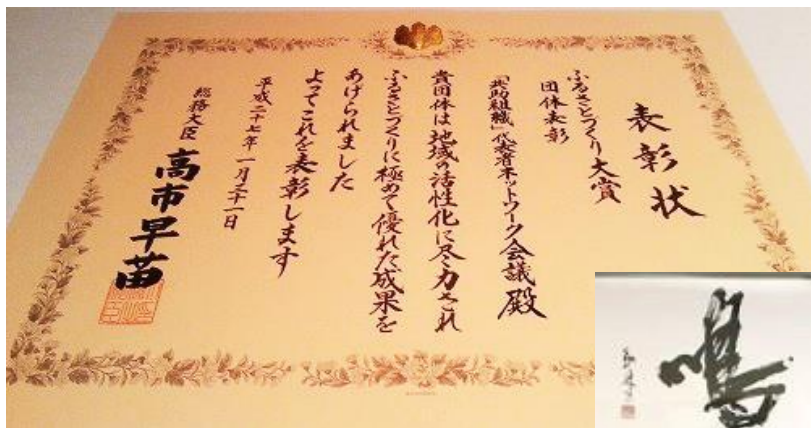 表彰状
ふるさとづくり大賞
団体表彰
「共助組織」代表者ネットワーク会議殿
貴団体は地域の活性化に尽力され
ふるさとづくりに極めて優れた成果を
あげられました
よってこれを表彰します
平成二十七年一月三十一日
総務大臣 高市早苗
鳴